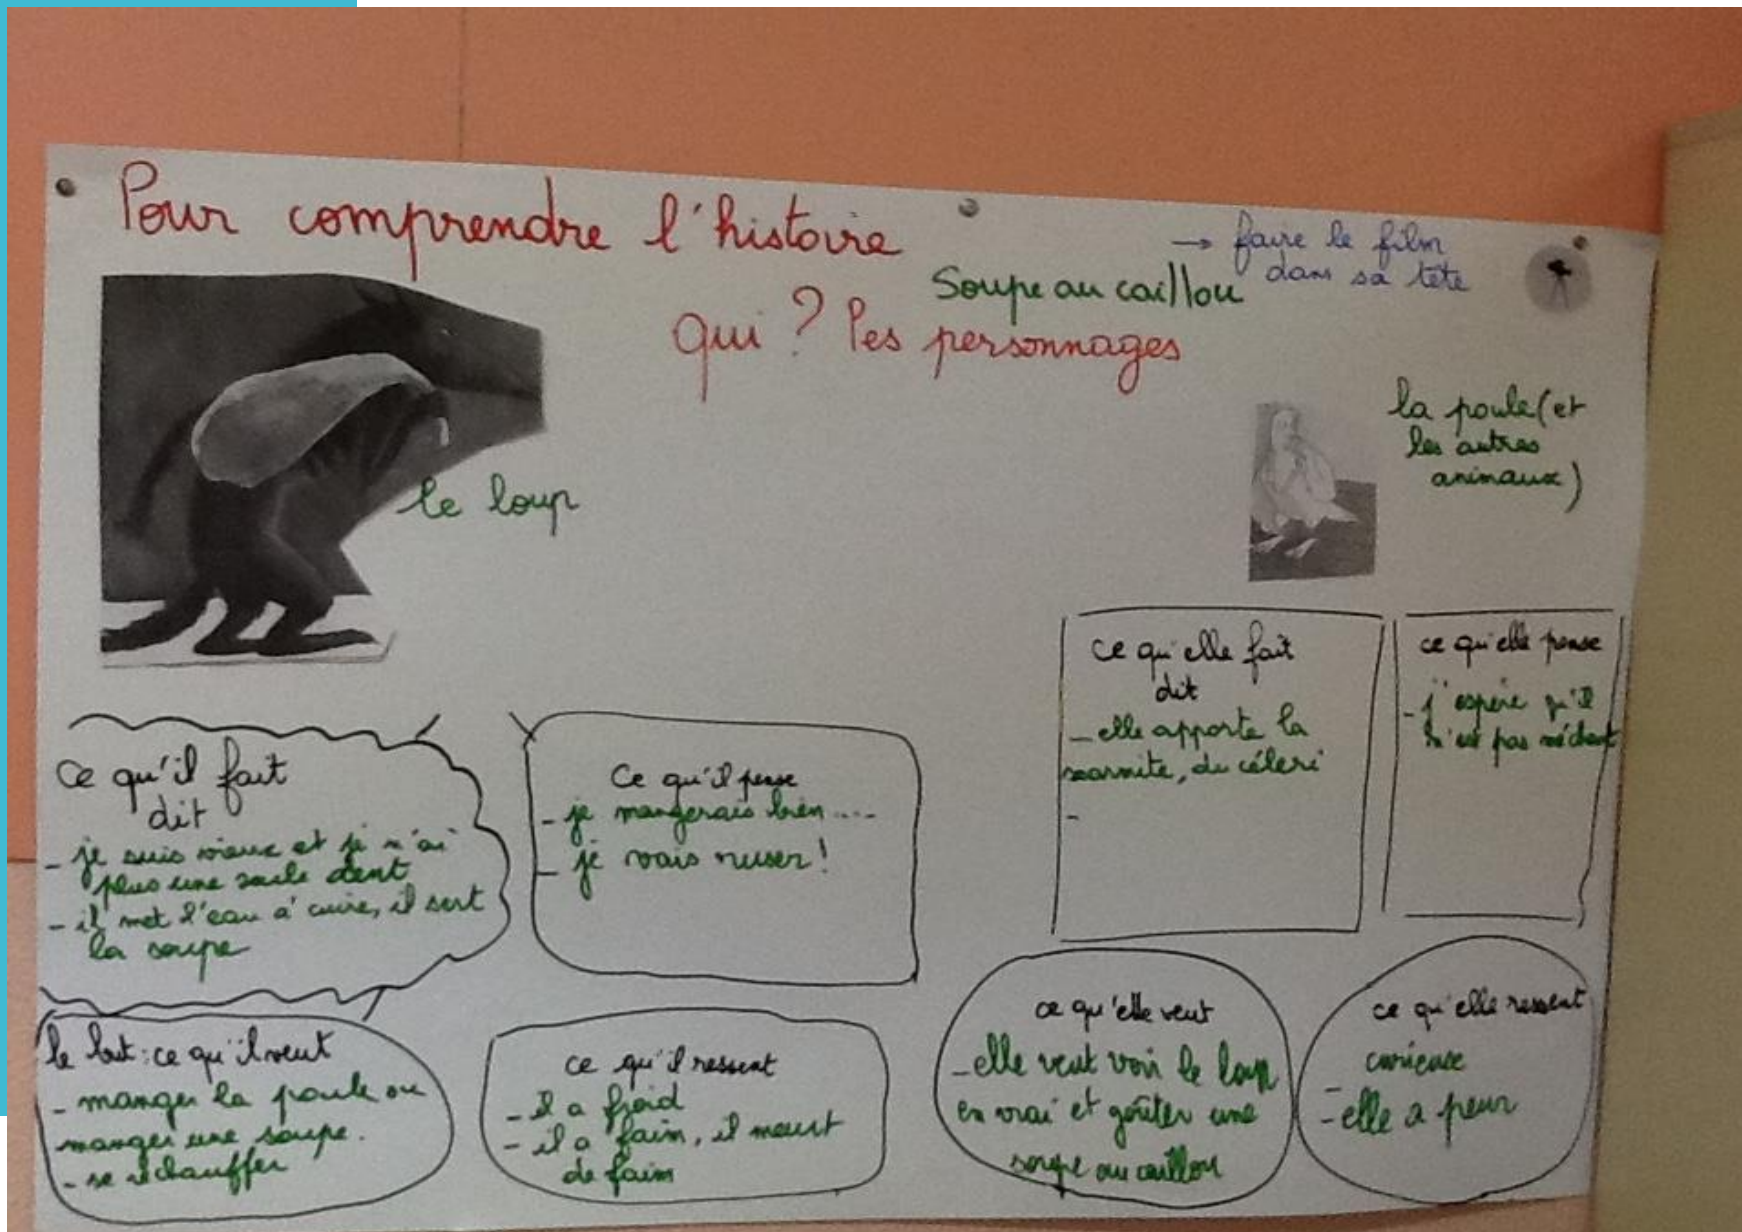 Pour comprendre l'histoire
→ faire le film
dans sa tête
Soupe au caillou
Qui ? les personnages
le loup
la poule (et
les autres
animaux)
Ce qu'il fait
dit
- je suis vieux et je n'ai
plus une seule dent
- il met l'eau à cuire, il sert
la soupe
Ce qu'il pense
- je mangerais bien ....
- je vais ruser !
ce qu'elle fait
dit
- elle apporte la
marmite, du céleri
-
ce qu'elle pense
- j'espère qu'il
n'est pas méchant
le but : ce qu'il veut
- manger la poule ou
manger une soupe.
- se réchauffer
ce qu'il ressent
- il a froid
- il a faim, il meurt
de faim
ce qu'elle veut
- elle veut voir le loup
en vrai et goûter une
soupe au caillou
ce qu'elle ressent
curieuse
-
- elle a peur